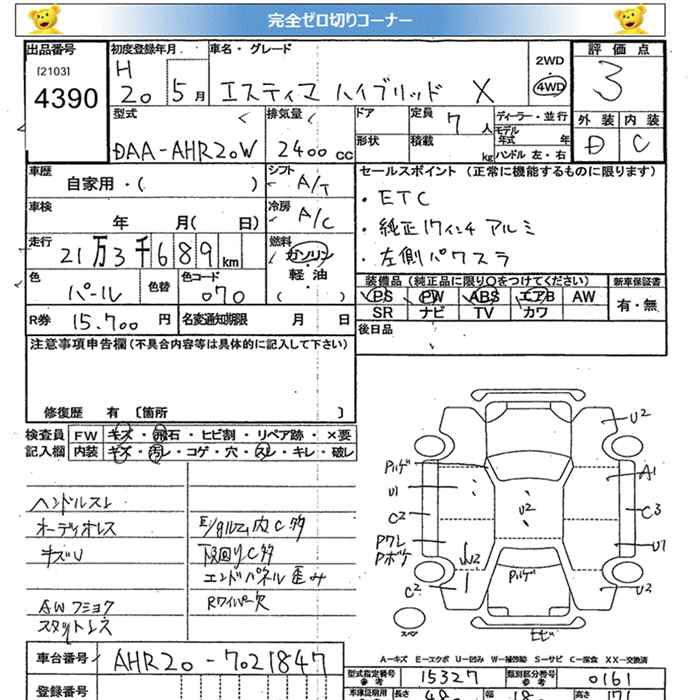 完全ゼロ切りコーナー
出品番号 初度登録年月 車名・グレード 2WD 評価点
[2103] H 4WD 3
4390 20 5月 エスティマ ハイブリッド X
型式 排気量 ドア 定員 7人 ディーラー・並行 外装 内装
DAA-AHR20W 2400cc 形状 積載 kg モデル年式 年 D C
ハンドル 左・右
車歴 シフト セールスポイント (正常に機能するものに限ります)
自家用・( ) A/T ・ETC
車検 年 月( 日 冷房 A/C ・純正17インチ アルミ
走行 21万3千689km 燃料 ガソリン ・左側パワスラ
色 色替 色コード 軽・油 装備品 (純正品に限り○をつけてください) 新車保証書
パール 070 ( ) PS PW ABS エアB AW 有・無
R券 15.700円 名変通知期限 月 日 SR ナビ TV カワ
後日品
注意事項申告欄 (不具合内容等は具体的に記入して下さい)
修復歴 有 〔箇所 〕
検査員 FW キズ・飛石・ヒビ割・リペア跡・×要
記入欄 内装 キズ・汚レ・コゲ・穴・スレ・キレ・破レ
ハンドルスレ
オーディオレス E/gルーム内C多
キズU 下回りC多
エンドパネル歪み
AWフミョク Rワイパー欠
スタットレス
U2
Pハゲ A1
U1
U2
C2 C3
Pワレ U1
Pボケ
W2
Pハゲ
C2 U2
スペア
モビ
A—キズ E—エクボ U—凹み W—補修跡 S—サビ C—腐食 XX—交換済
車台番号 AHR20-7021847
型式指定番号 15327 類別区分番号 0161
登録番号
長さ 幅 高さ